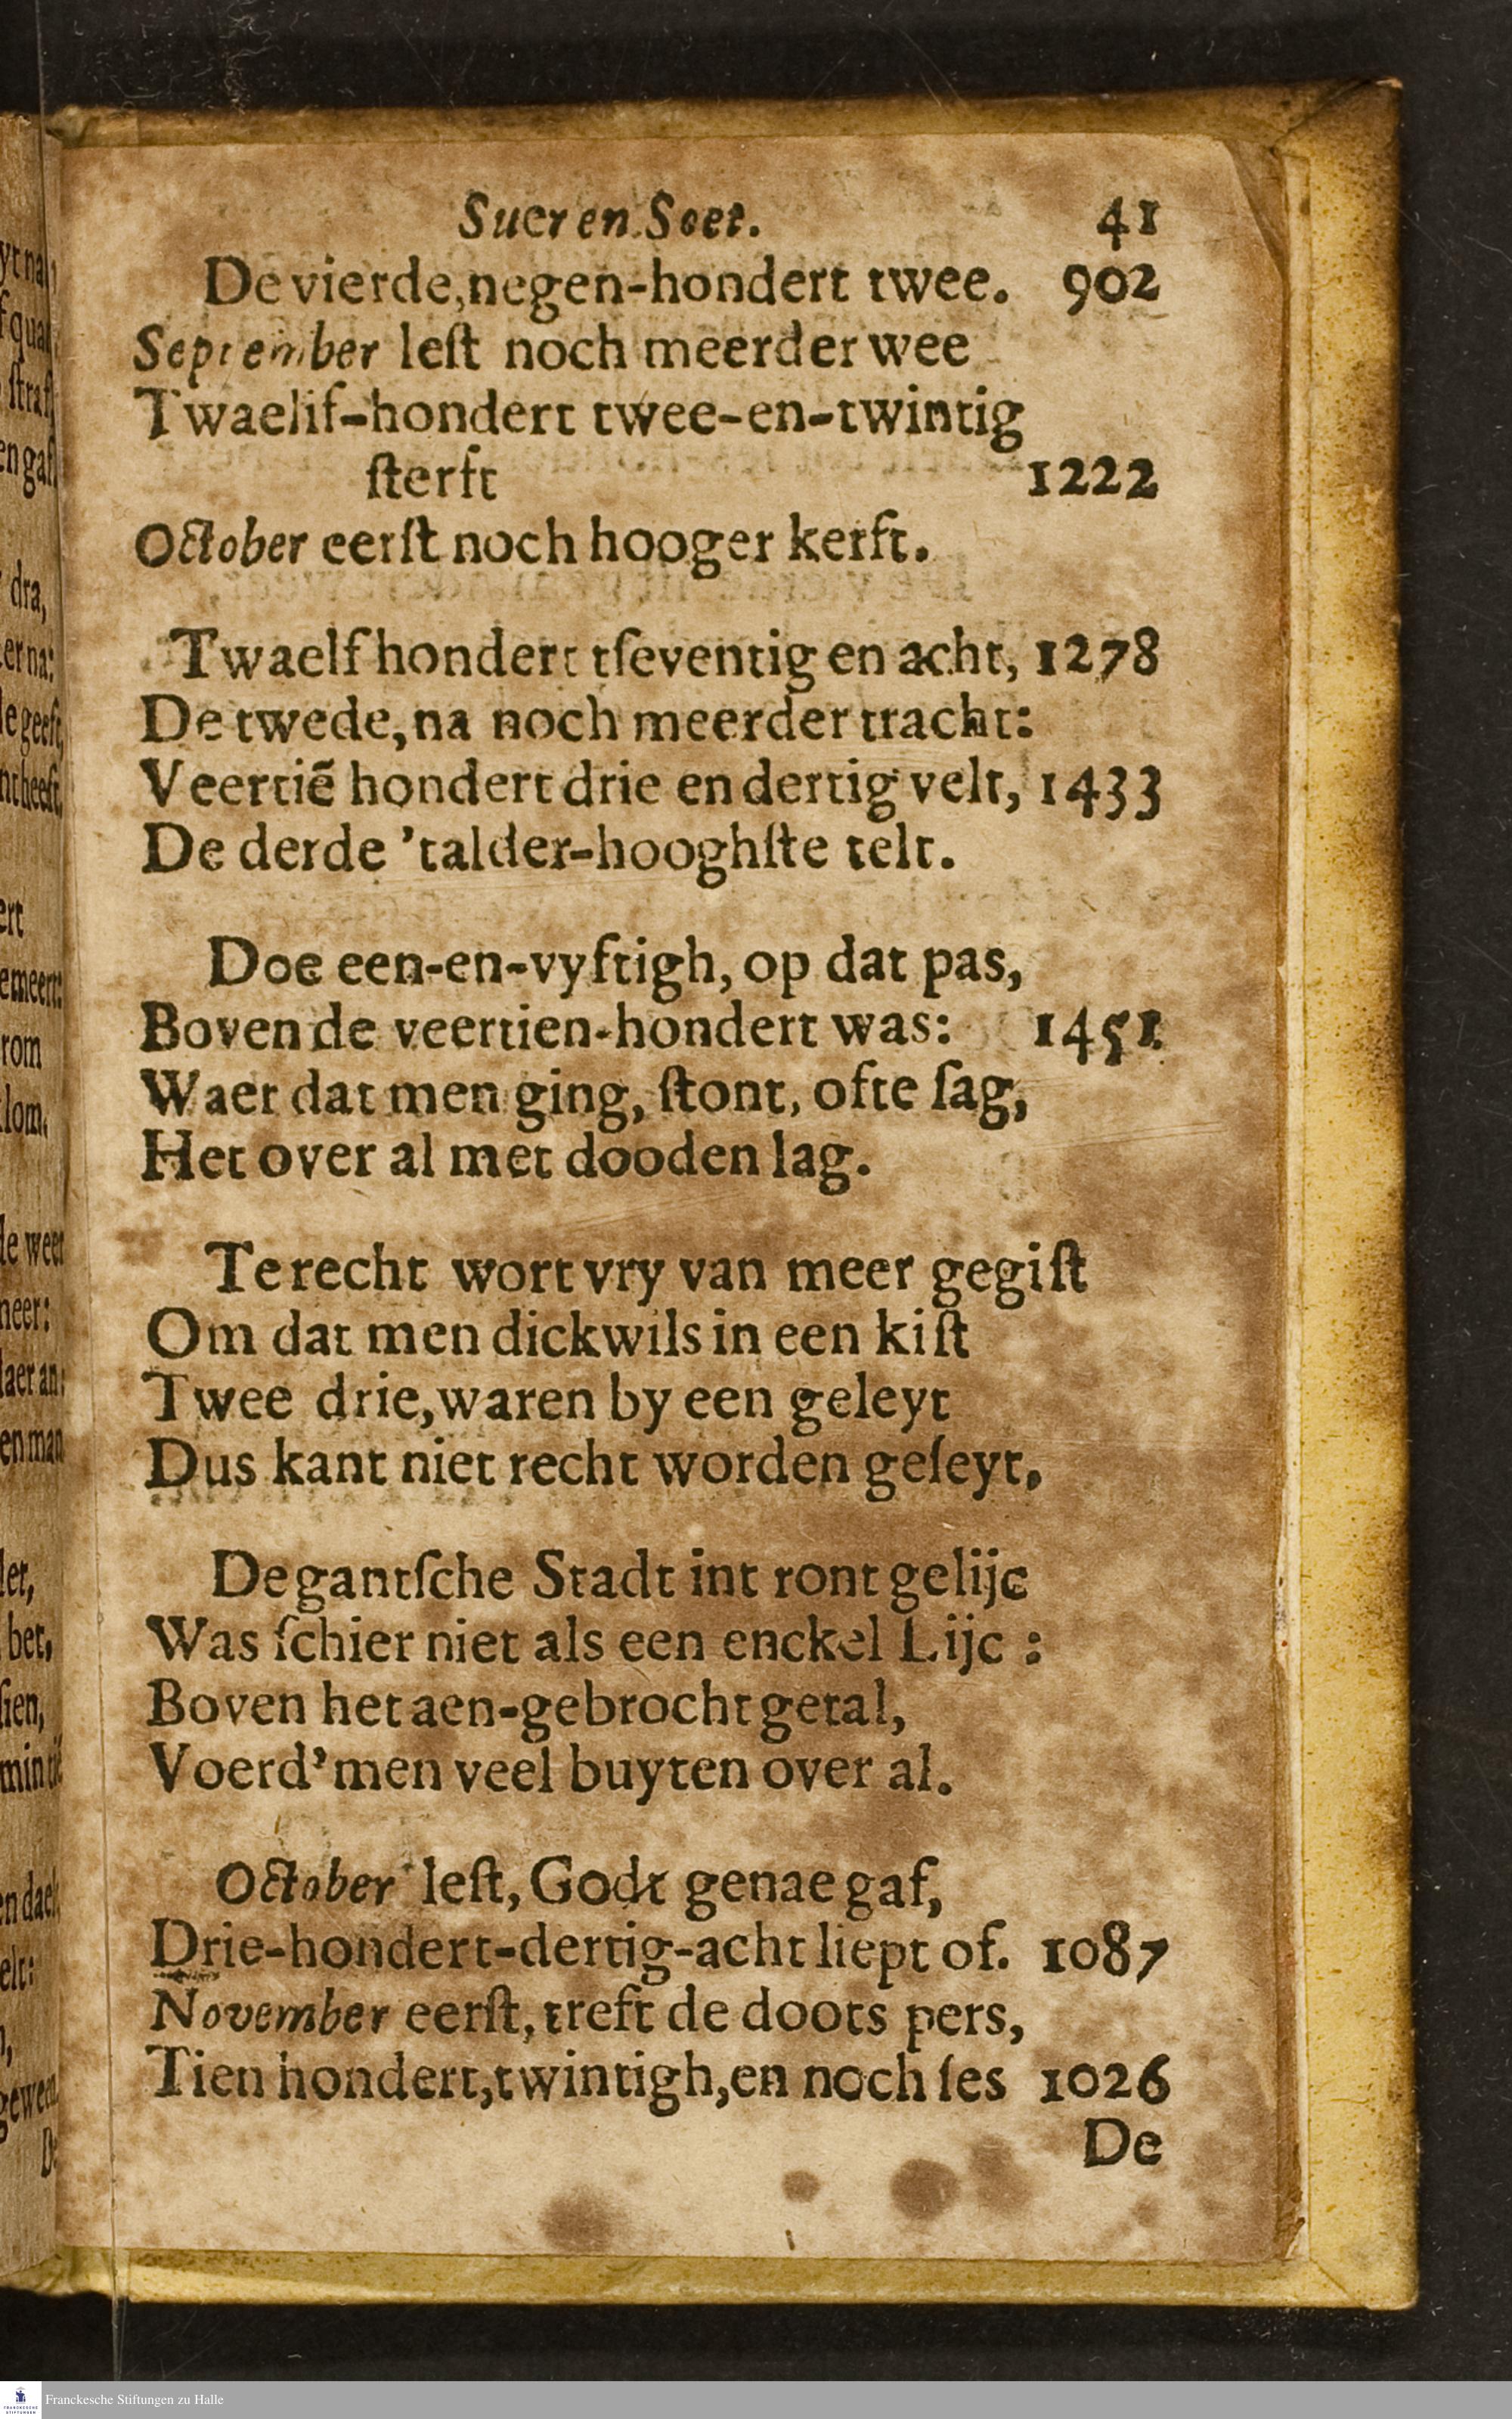 Suer en Soet. 41
De vierde, negen-hondert twee. 902
September leſt noch meerder wee
Twaelif-hondert twee-en-twintig
ſterft 1222
October eerſt noch hooger kerft.
Twaelf hondert tſeventig en acht, 1278
De twede, na noch meerder tracht:
Veertiē hondert drie en dertig velt, 1433
De derde 'talder-hooghſte telt.
Doe een-en-vyftigh, op dat pas,
Boven de veertien-hondert was: 1451
Waer dat men ging, ſtont, ofte ſag,
Het over al met dooden lag.
Te recht wort vry van meer gegiſt
Om dat men dickwils in een kiſt
Twee drie, waren by een geleyt
Dus kant niet recht worden geſeyt.
De gantſche Stadt int ront gelijc
Was ſchier niet als een enckel Lijc :
Boven het aen-gebrocht getal,
Voerd'men veel buyten over al.
October leſt, Godt genae gaf,
Drie-hondert-dertig-acht liept of. 1087
November eerſt, treft de doots pers,
Tien hondert, twintigh, en noch ſes 1026
De
Franckesche Stiftungen zu Halle